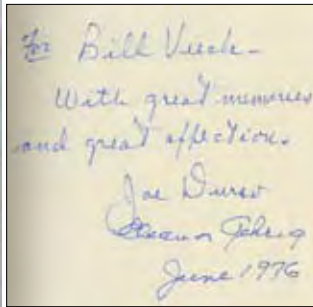 For Bill Veeck -
With great memories
and great affection.
Joe Durso
Eleanor Gehrig
June 1976